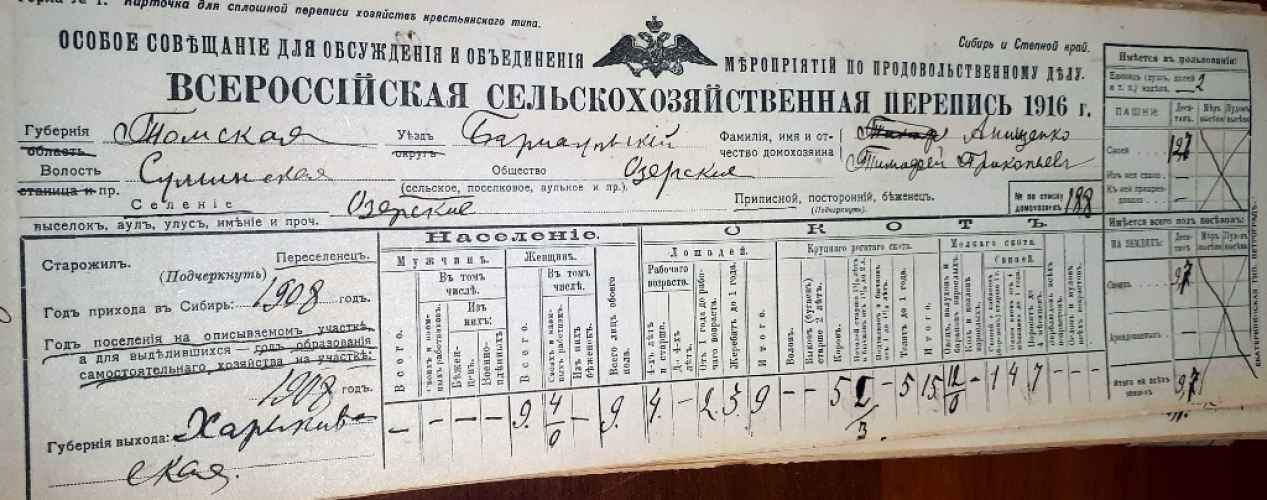 Карточка для сплошной переписи хозяйствъ крестьянскаго типа.
ОСОБОЕ СОВѢЩАНІЕ ДЛЯ ОБСУЖДЕНІЯ И ОБЪЕДИНЕНІЯ
МѢРОПРІЯТІЙ ПО ПРОДОВОЛЬСТВЕННОМУ ДѢЛУ.
Сибирь и Степной край.
ВСЕРОССІЙСКАЯ СЕЛЬСКОХОЗЯЙСТВЕННАЯ ПЕРЕПИСЬ 1916 г.
Губернія Томская Уѣздъ Барнаульскій Фамилія, имя и от- Анищенко
область округъ чество домохозяина Тимофей Прокопьевъ
Волость Сузунская Общество Озерские
станица и пр. (сельское, поселковое, аульное и пр.)
Селеніе Озерские Приписной, посторонній, бѣженецъ. № по списку домохозяевъ 188
выселокъ, аулъ, улусъ, имѣніе и проч. (Подчеркнуть).
Старожилъ. Переселенецъ.
(Подчеркнуть)
Годъ прихода въ Сибирь: 1908 годъ.
Годъ поселенія на описываемомъ участкѣ,
а для выдѣлившихся — годъ образованія
самостоятельнаго хозяйства на участкѣ:
1908 годъ.
Губернія выхода: Харьков-
ская
Населеніе.
Мужчинъ. Женщинъ.
Всего. Въ томъ числѣ. Изъ нихъ: Бѣжен-цевъ. Военно-плѣнныхъ
Всего. Въ томъ числѣ. Изъ нихъ бѣженокъ. Всего лицъ обоего пола.
— — — — 9. 4/0 — 9.
СКОТЪ.
Лошадей.
Рабочаго возраста. 4-хъ лѣтъ и старше. До 4-хъ лѣтъ. Отъ 1 года до рабочаго возраста. Жеребятъ до 1 года. Итого.
4. — 2. 3. 9
Крупнаго рогатаго скота.
Воловъ. Быковъ (бугаевъ) старше 2 лѣтъ. Коровъ. Телятъ до 1 года. Итого.
— — 5 3. — 5 15
Мелкаго скота.
Овецъ, валуховъ и барановъ взрослыхъ. Свиней.
12/0 — 14 7
Имѣется въ пользованіи:
ПАШНИ: Деся-тинъ.
Своей 12,7
Имѣется всего подъ посѣвомъ:
НА ЗЕМЛЯХЪ:
Своихъ 9,7
Арендованныхъ
Итого на всѣхъ земляхъ 9,7